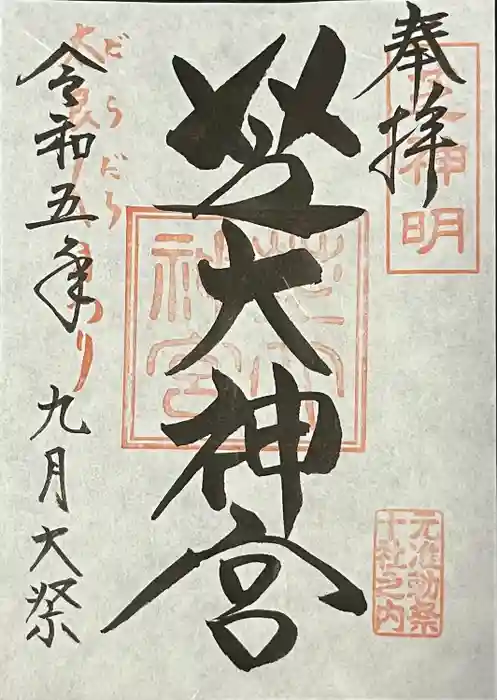 奉拝
芝神明
芝大神宮
元准勅祭
十社之内
だらだらまつり
令和五年九月大祭